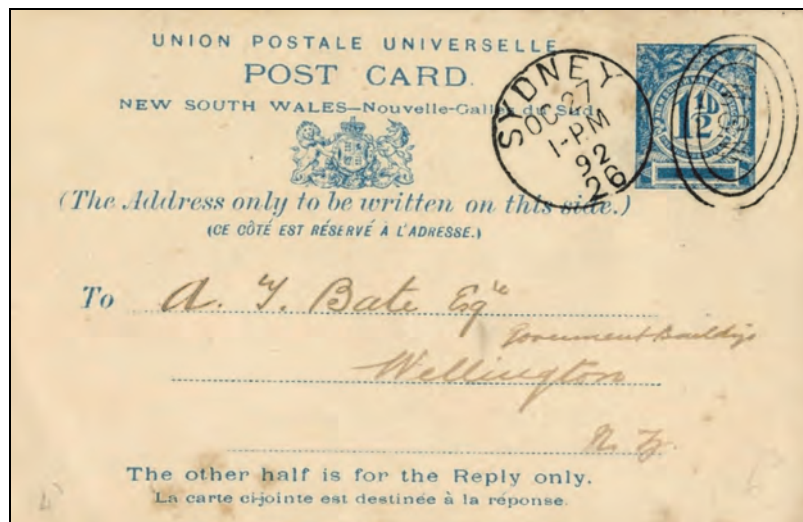 UNION POSTALE UNIVERSELLE
POST CARD.
NEW SOUTH WALES—Nouvelle-Galles du Sud
SYDNEY
OC 27
1-PM
92
26
1½D
(The Address only to be written on this side.)
(CE CÔTÉ EST RÉSERVÉ À L'ADRESSE.)
To A. T. Bate Esqre
Government Buildings
Wellington
N. Z.
The other half is for the Reply only.
La carte ci-jointe est destinée à la réponse.